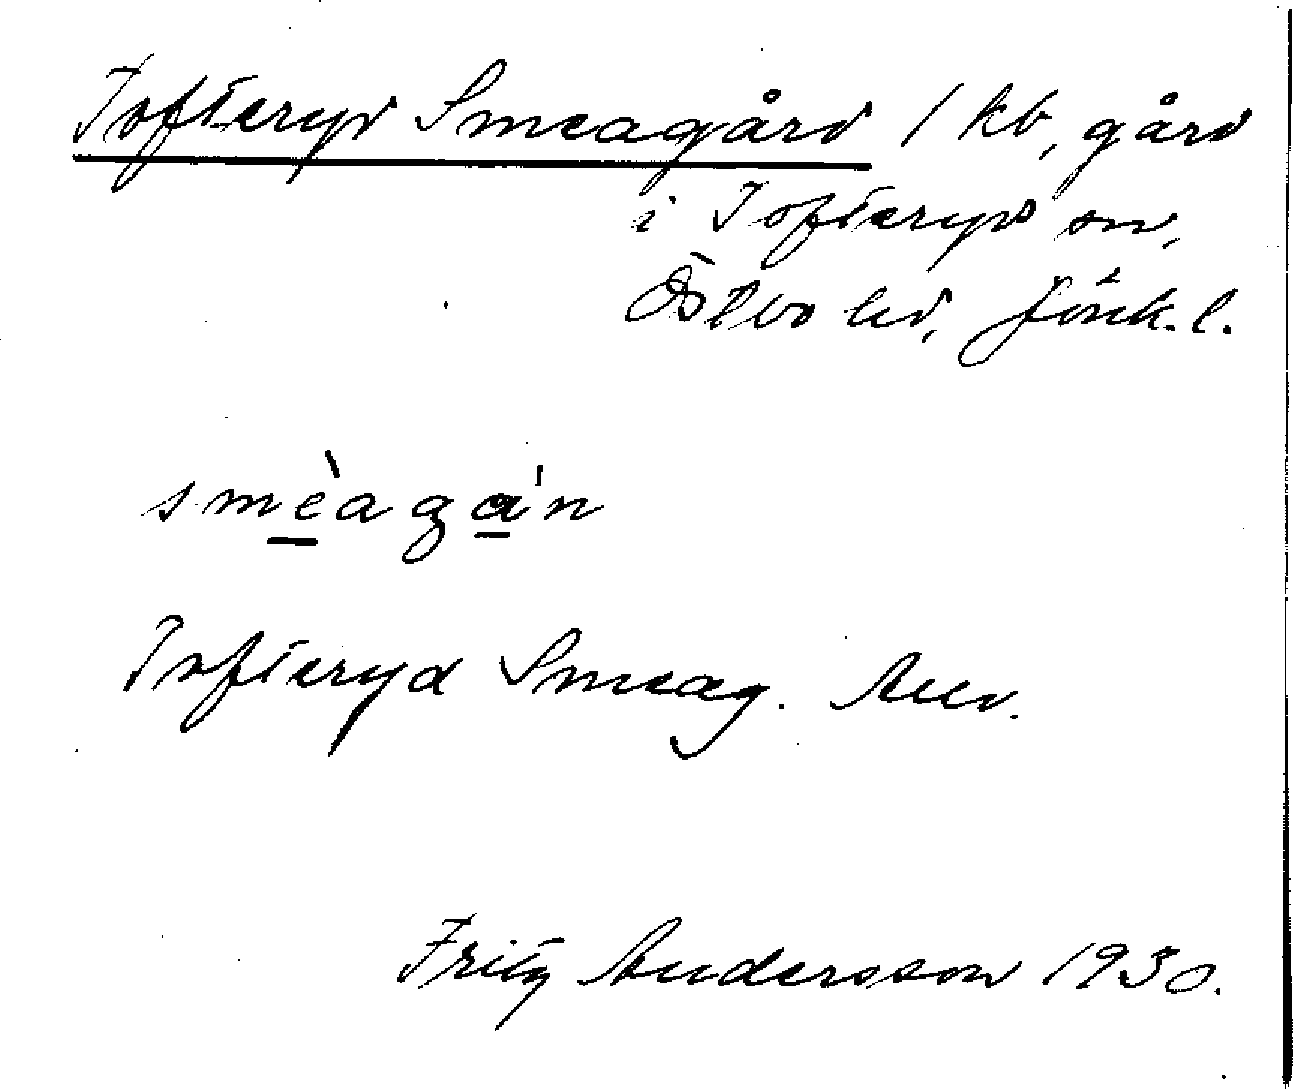 Tofteryd Smeagård 1 kb, gård
i Tofteryds sn,
Östbo hd, Jönk. l.
smèagán
Tofteryd Smeag.
Fritz Andersson 1930.